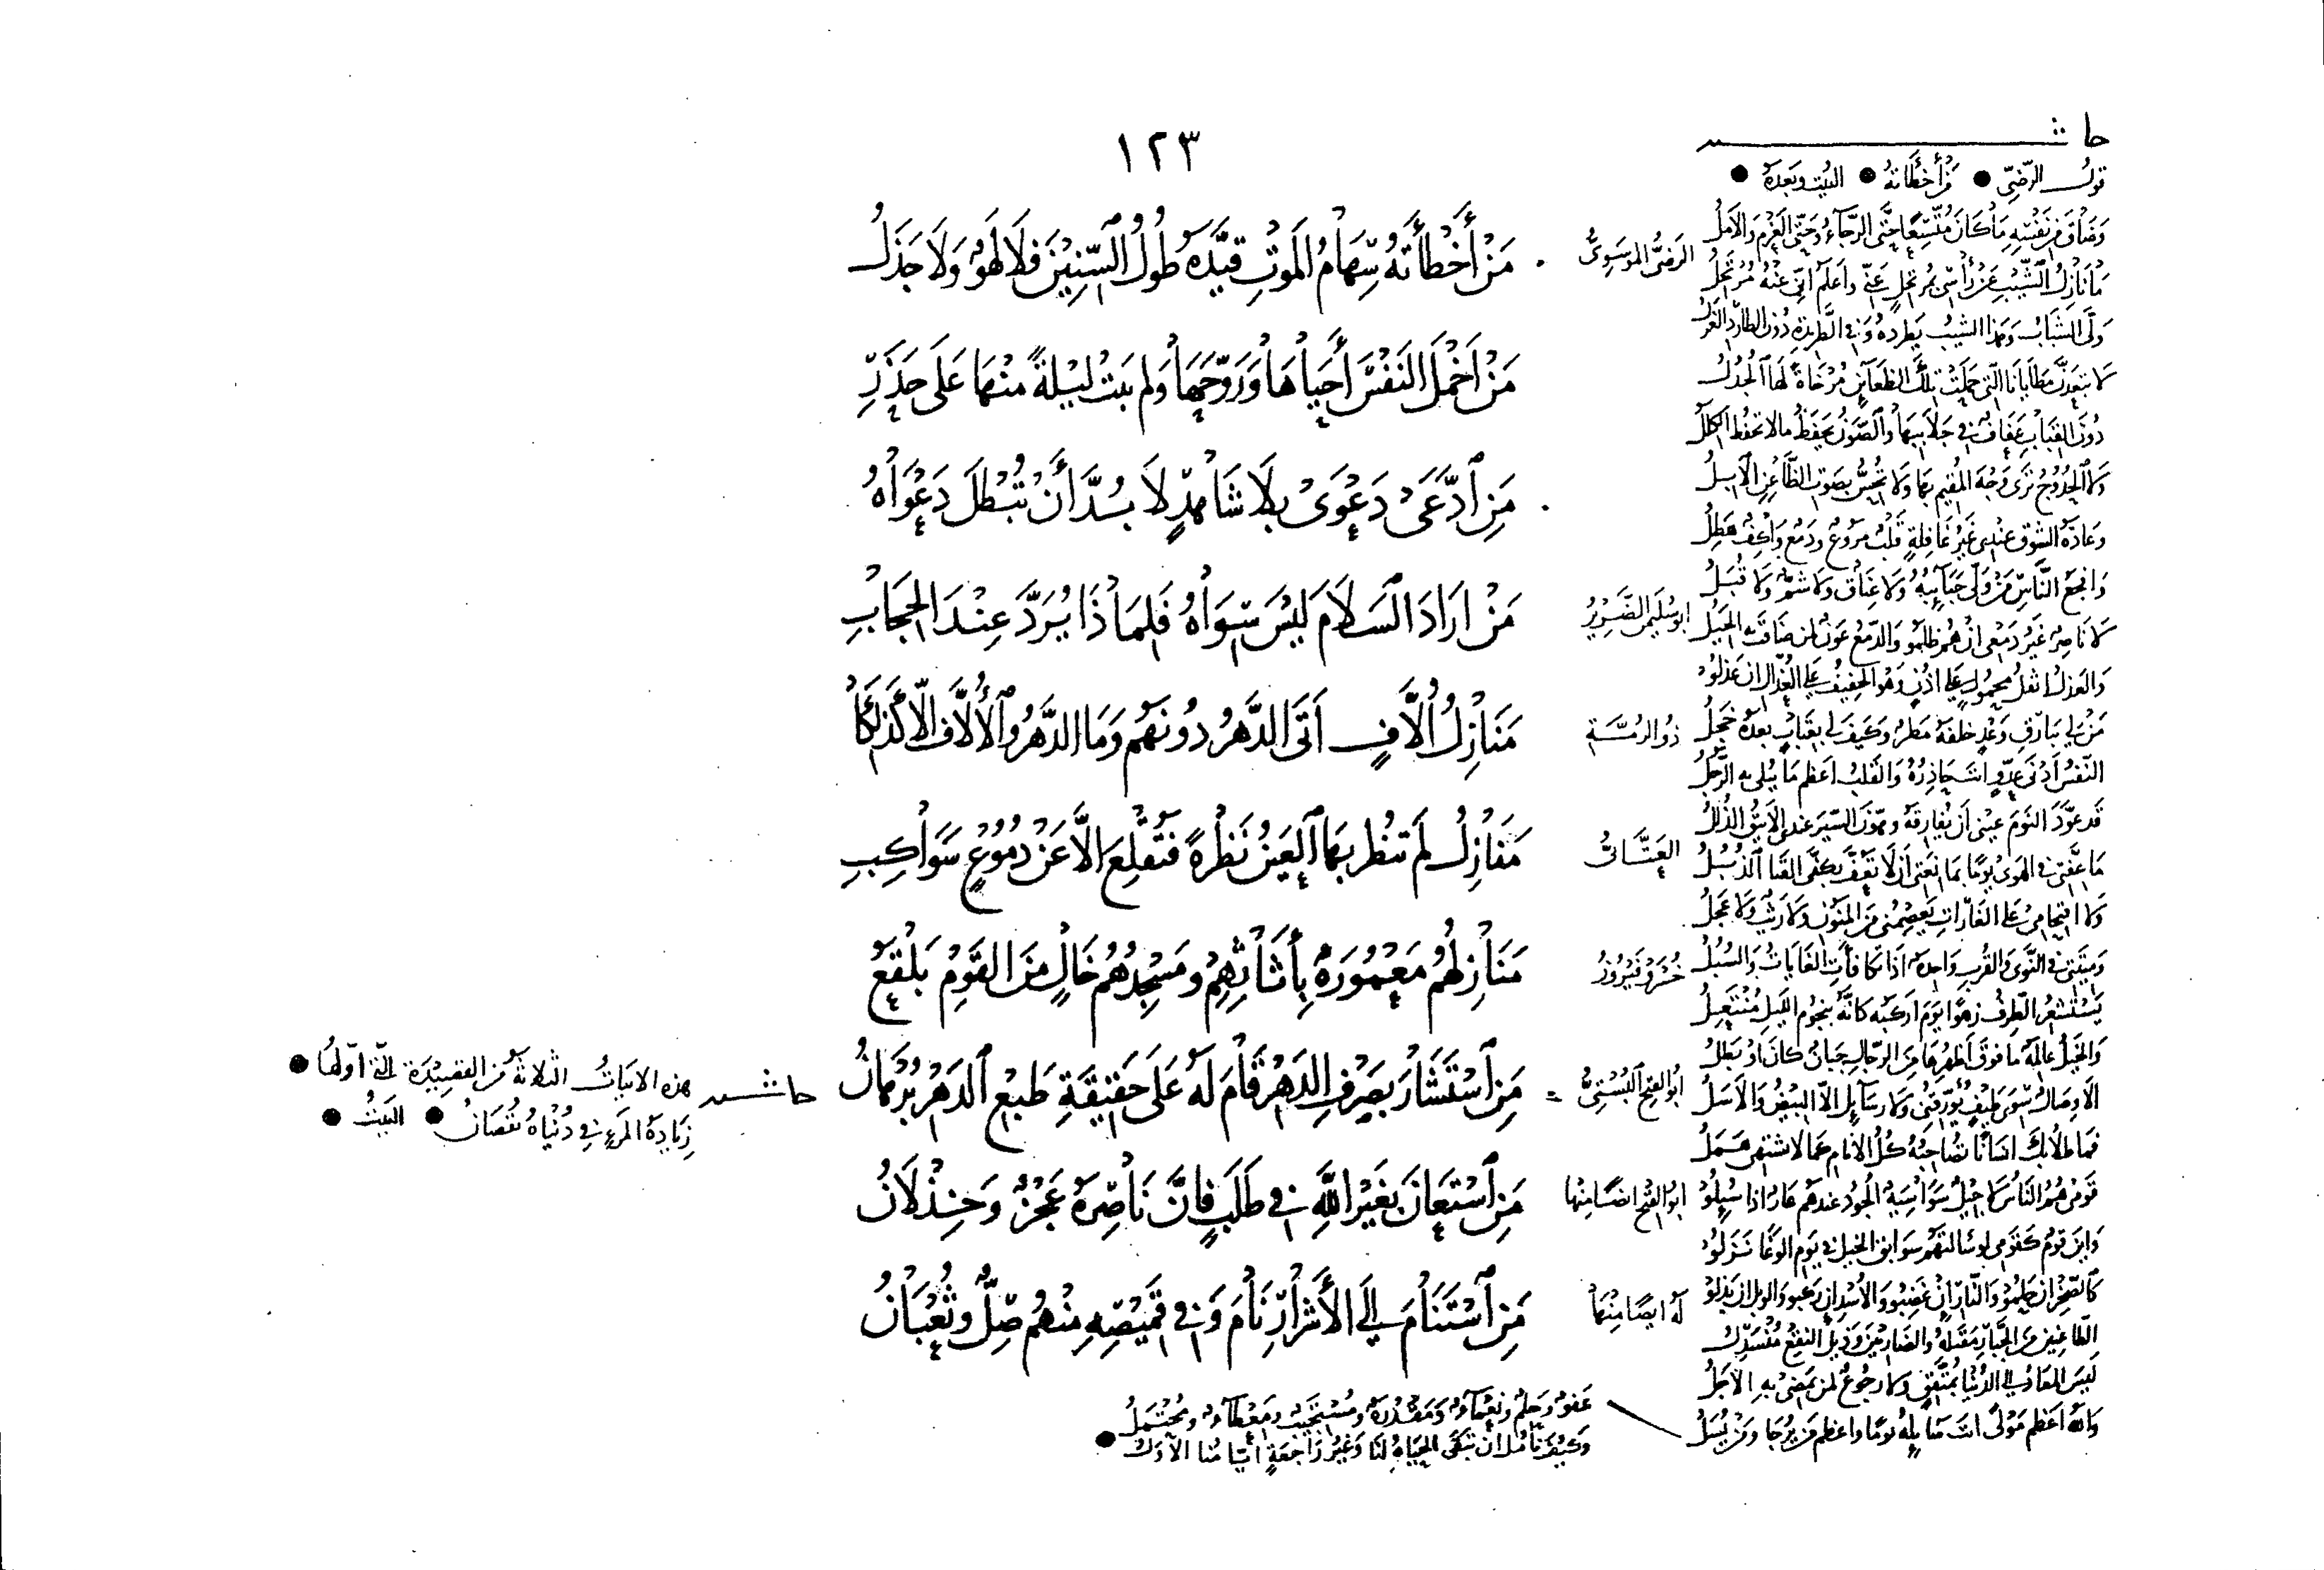 ١٢٣
الرضى الموسوى
مَنْ أَخْطَأَتْهُ سِهَامُ المَوْتِ قيَّدَهُ طُولُ السِّنِيْنَ فلَا لَهْوٌ وَلَا جَذَلُ
مَنْ اَخْمَلَ النَفْسَ أحيَاهَا وَرَوَّحَهَا وَلم يَبتْ ليْلةً منْهَا عَلَى حَذَرِ
مَنِ ٱدَّعَى دَعْوَى بلَا شَاهِدٍ لَا بُدَّ أَنْ تُبْطلَ دَعْوَاهُ
ابو سليمن الضرير
مَنْ ارَادَ السَلَامَ ليْسَ سِوَاهُ فَلِمَاذَا يُرَدَّ عِنْدَ الحِجَابِ
ذو الرمة
مَنَازِلُ أُلَّافٍ اَتَى الدَّهرُ دُونَهُم وَمَا الدَّهرُ وَالأُلَّاف الّا كَذَلِكَا
العتابى
مَنَازِلُ لم تنْظر بهَا العَيْنُ نَظْرةً فتُقْلِعَ الَّا عَنْ دُمُوْعٍ سَوَاكِبِ
خسرو فيروز
مَنَازِلهُمْ مَعْمُوْرَةٌ بِأَثَاثِهِمْ ومَسْجِدُهُم خَالٍ مِنَ القَوْمِ بَلْقَعُ
ابو الفتح البستى
مَنِ ٱسْتَشَارَ بصَرْفِ الدَهْرِ قَامَ لَهُ عَلَى حَقيْقَةِ طَبْعِ الدَهْرِ بُرْهَانُ
ابو الفتح ايضا منها
مَنِ ٱسْتَعَانَ بغَيْرِ اللَّهِ فى طَلَبٍ فإنَّ نَاصِرَهُ عَجْزٌ وَخِذْلَانُ
له ايضا منها
مَنِ ٱسْتَنَامَ إلى الأَشْرَارِ نَامَ وَفى قَمِيْصِهِ مِنْهُمْ صِلٌّ وثُعْبَانُ
حاشيه
قول الرضى ● من أخطأته ● البيت وبعده ●
وضاق من نفسه ما كان متسعا حتى الرجاء وحتى العزم والامل
ما نازل الشيب عن رأسى بمرتحل عنى واعلم انى عنه مرتحل
ولى الشباب وهذا الشيب يطرده وفى الطريدة دون الطارد
لا تبعدن مطايانا التى حملت تلك الظعاين مرخاة لها الجدل
دون القباب عفاف فى جلابيبها والصون يحفظ مالا تحفظ الكلل
ولا الحدوج ترى وجه المقيم بها ولا تحس بصوت الظاعن الابل
وعادة الشوق عندى غير غافلة قلب مروع ودمع واكف هطل
وافجع الناس من ولى حبايبه ولا عناق ولا ضم ولا قبل
لا ناصر غير دمعى ان هم ظلموا والدمع عون لمن ضاقت به الحيل
والعذل اثقل محمول على اذن وهو الخفيف على العذال ان عذلوا
من لى ببارق وعد خلفه مطر وكيف لى بعتاب بعده خجل
النفس أدنى عدو انت حاذره والقلب اعظم ما يبلى به الرجل
قد عود النوم عينى أن تفارقه وهون السير عندى الاينق الذلل
ولا اقتحامى على الغارات يعصمنى من المنون ولا ريث ولا عجل
وميتتى فى النوى والقرب واحدة اذا تكافأت الغايات والسبل
يستشعر الطرف زهوا يوم اركبه كانه بنجوم الليل منتعل
والخيل عالمة ما فوق أظهرها من الرجال جبان كان او بطل
الا وصال سوى طيف يؤرقنى ولا رسايل الا البيض والاسل
فما طلابك انسانا تصاحبه كل الانام كما لا تشتهى همل
واين قوم كقومى لو سالتهم سوابق الخيل فى يوم الوغا نزلوا
كالصخر ان حلموا والنار ان غضبوا والاسد ان ركبوا والوبل ان بذلوا
الطاعنين من الجبار مقتله والضاربين وذيل النقع منسدل
ليس المعاد الى الدنيا بمتفق ولا رجوع لمن يمضى به الاجل
والله اعظم مولى انت سايله يوما واعظم من يرجا ومن يسل
عفو وحلم ونعماء ومقدرة ومستجيب ومعطاء ومحتمل
وكيف نأمل ان تبقى الحياة لنا وغير راجعة ايامنا الاول ●
حاشيه
هذه الابيات الثلاثة من القصيدة التى اولها ●
زيادة المرء فى دنياه نقصان ● البيت ●